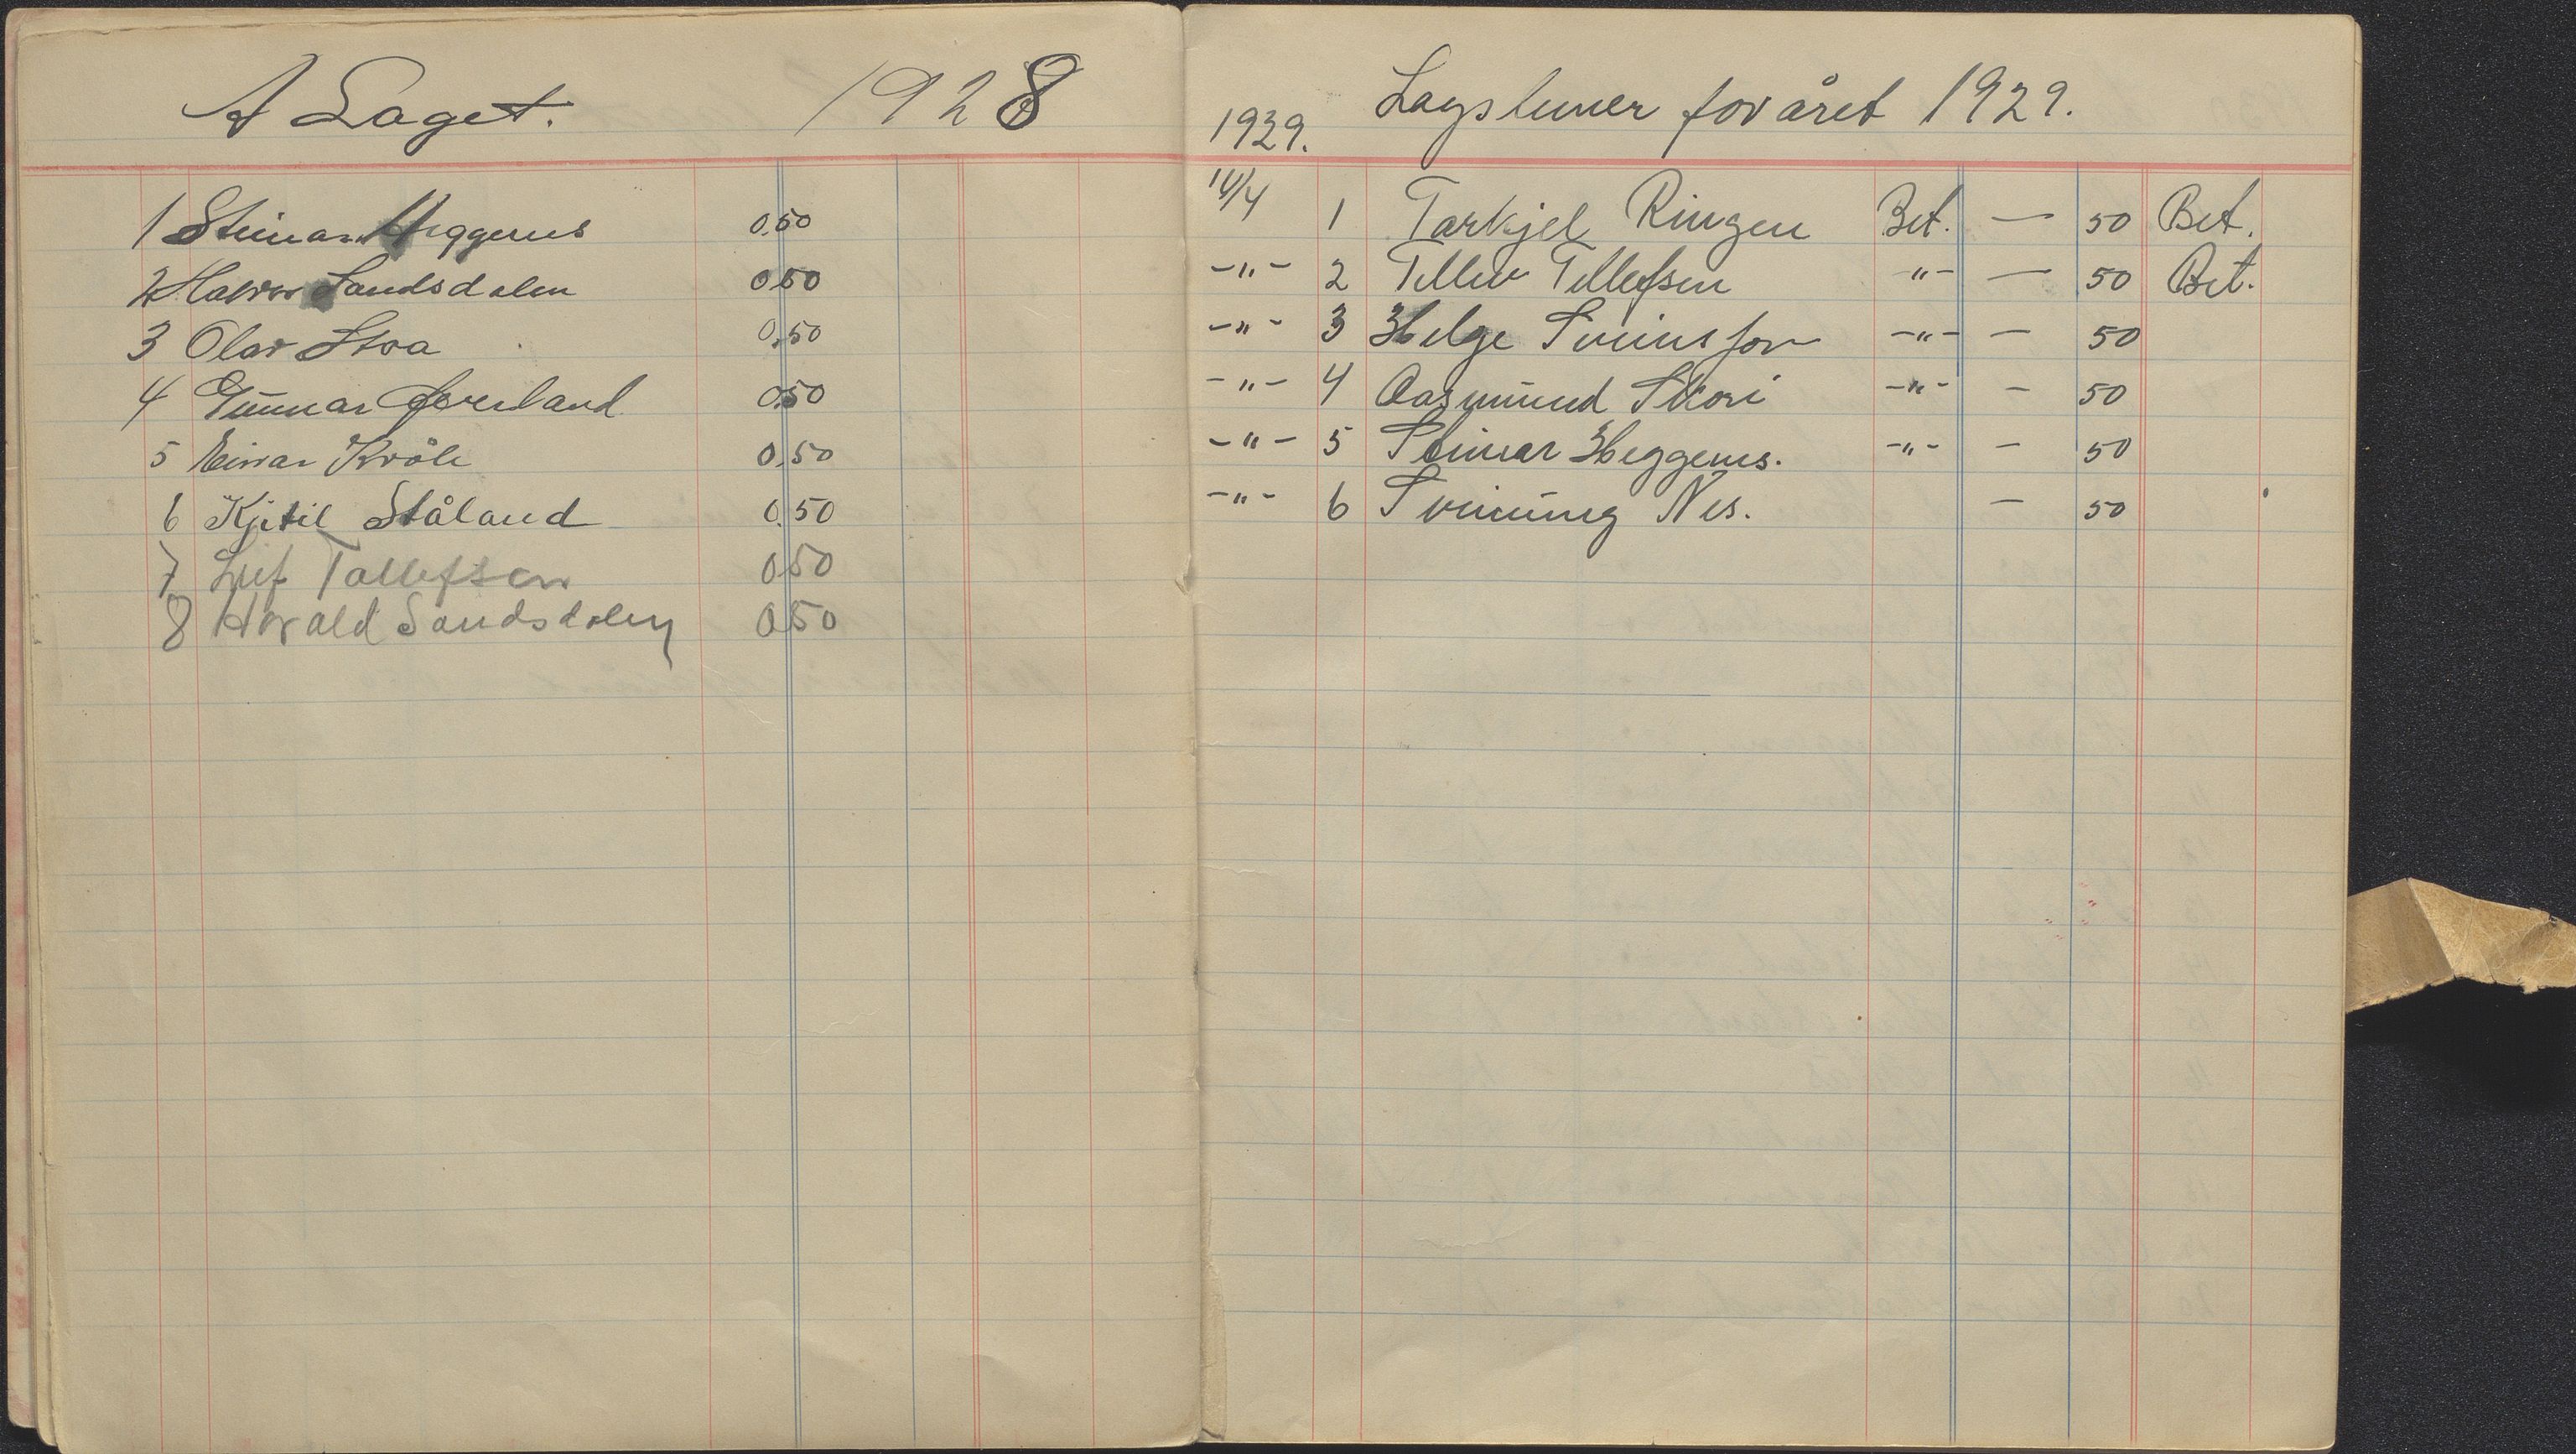 A Laget. 1928
1 Steinar Heggenes 0.50
2 Halvor Sandsdalen 0.50
3 Olav Stva 0.50
4 Gunnar Øverland 0.50
5 Einar Kvåle 0.50
6 Kjetil Ståland 0.50
7 Leif Tallefsen 0.50
8 Harald Sandsdalen 0.50
Lagslemer for året 1929.
1929.
14/4 1 Tarkjel Ringen Bet. — 50 Bet.
-"- 2 Tellev Tellefsen "- — 50 Bet.
-"- 3 Helge Sveinsson -"- — 50
-"- 4 Aasmund Skori -"- — 50
-"- 5 Steinar Heggenes. -"- — 50
-"- 6 Sveinung Nes. — 50